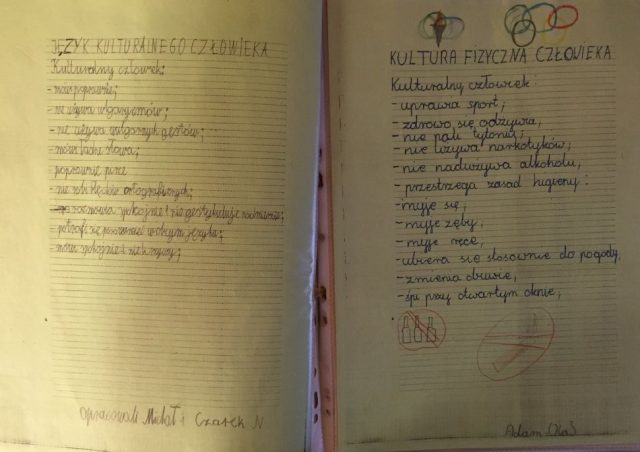 JĘZYK KULTURALNEGO CZŁOWIEKA
Kulturalny człowiek:
- mówi poprawnie;
- nie używa wulgaryzmów;
- nie używa wulgarnych gestów;
- mówi ładne słowa;
poprawnie pisze
- nie robi błędów ortograficznych;
- rozmawia spokojnie i nie gestykuluje nadmiernie;
- potrafi się porozumieć w obcym języku;
- mówi spokojnie i nie krzyczy;
Opracowali Michał i Czarek N
KULTURA FIZYCZNA CZŁOWIEKA
Kulturalny człowiek:
- uprawia sport;
- zdrowo się odżywia,
- nie pali tytoniu;
- nie używa narkotyków;
- nie nadużywa alkoholu,
- przestrzega zasad higieny:
- myje się,
- myje zęby,
- myje ręce,
- ubiera się stosownie do pogody,
- zmienia obuwie,
- śpi przy otwartym oknie,
Adam